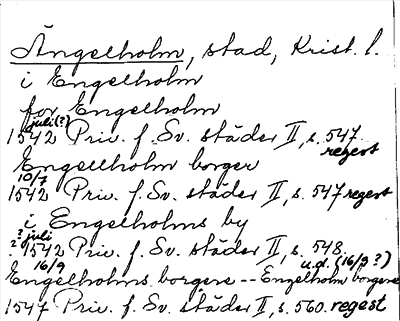 Ängelholm, stad, Krist. l.
i Engelholm
for Engelholm
juli(?)
1542 Priv. f. Sv. städer II, s. 547. regest
Engellholm borger
10/7
1542 Priv. f. Sv. städer II, s. 547 regest
i Engelholms by
? juli
? 1542 Priv. f. Sv. städer II, s. 548.
16/9 u.d. (16/9?)
Engelholms borgere -- Engelholm borgere
1547 Priv. f. Sv. städer II, s. 560. regest